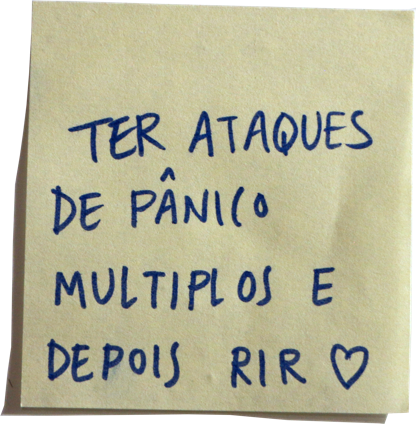 TER ATAQUES
DE PÂNICO
MULTIPLOS E
DEPOIS RIR ♡